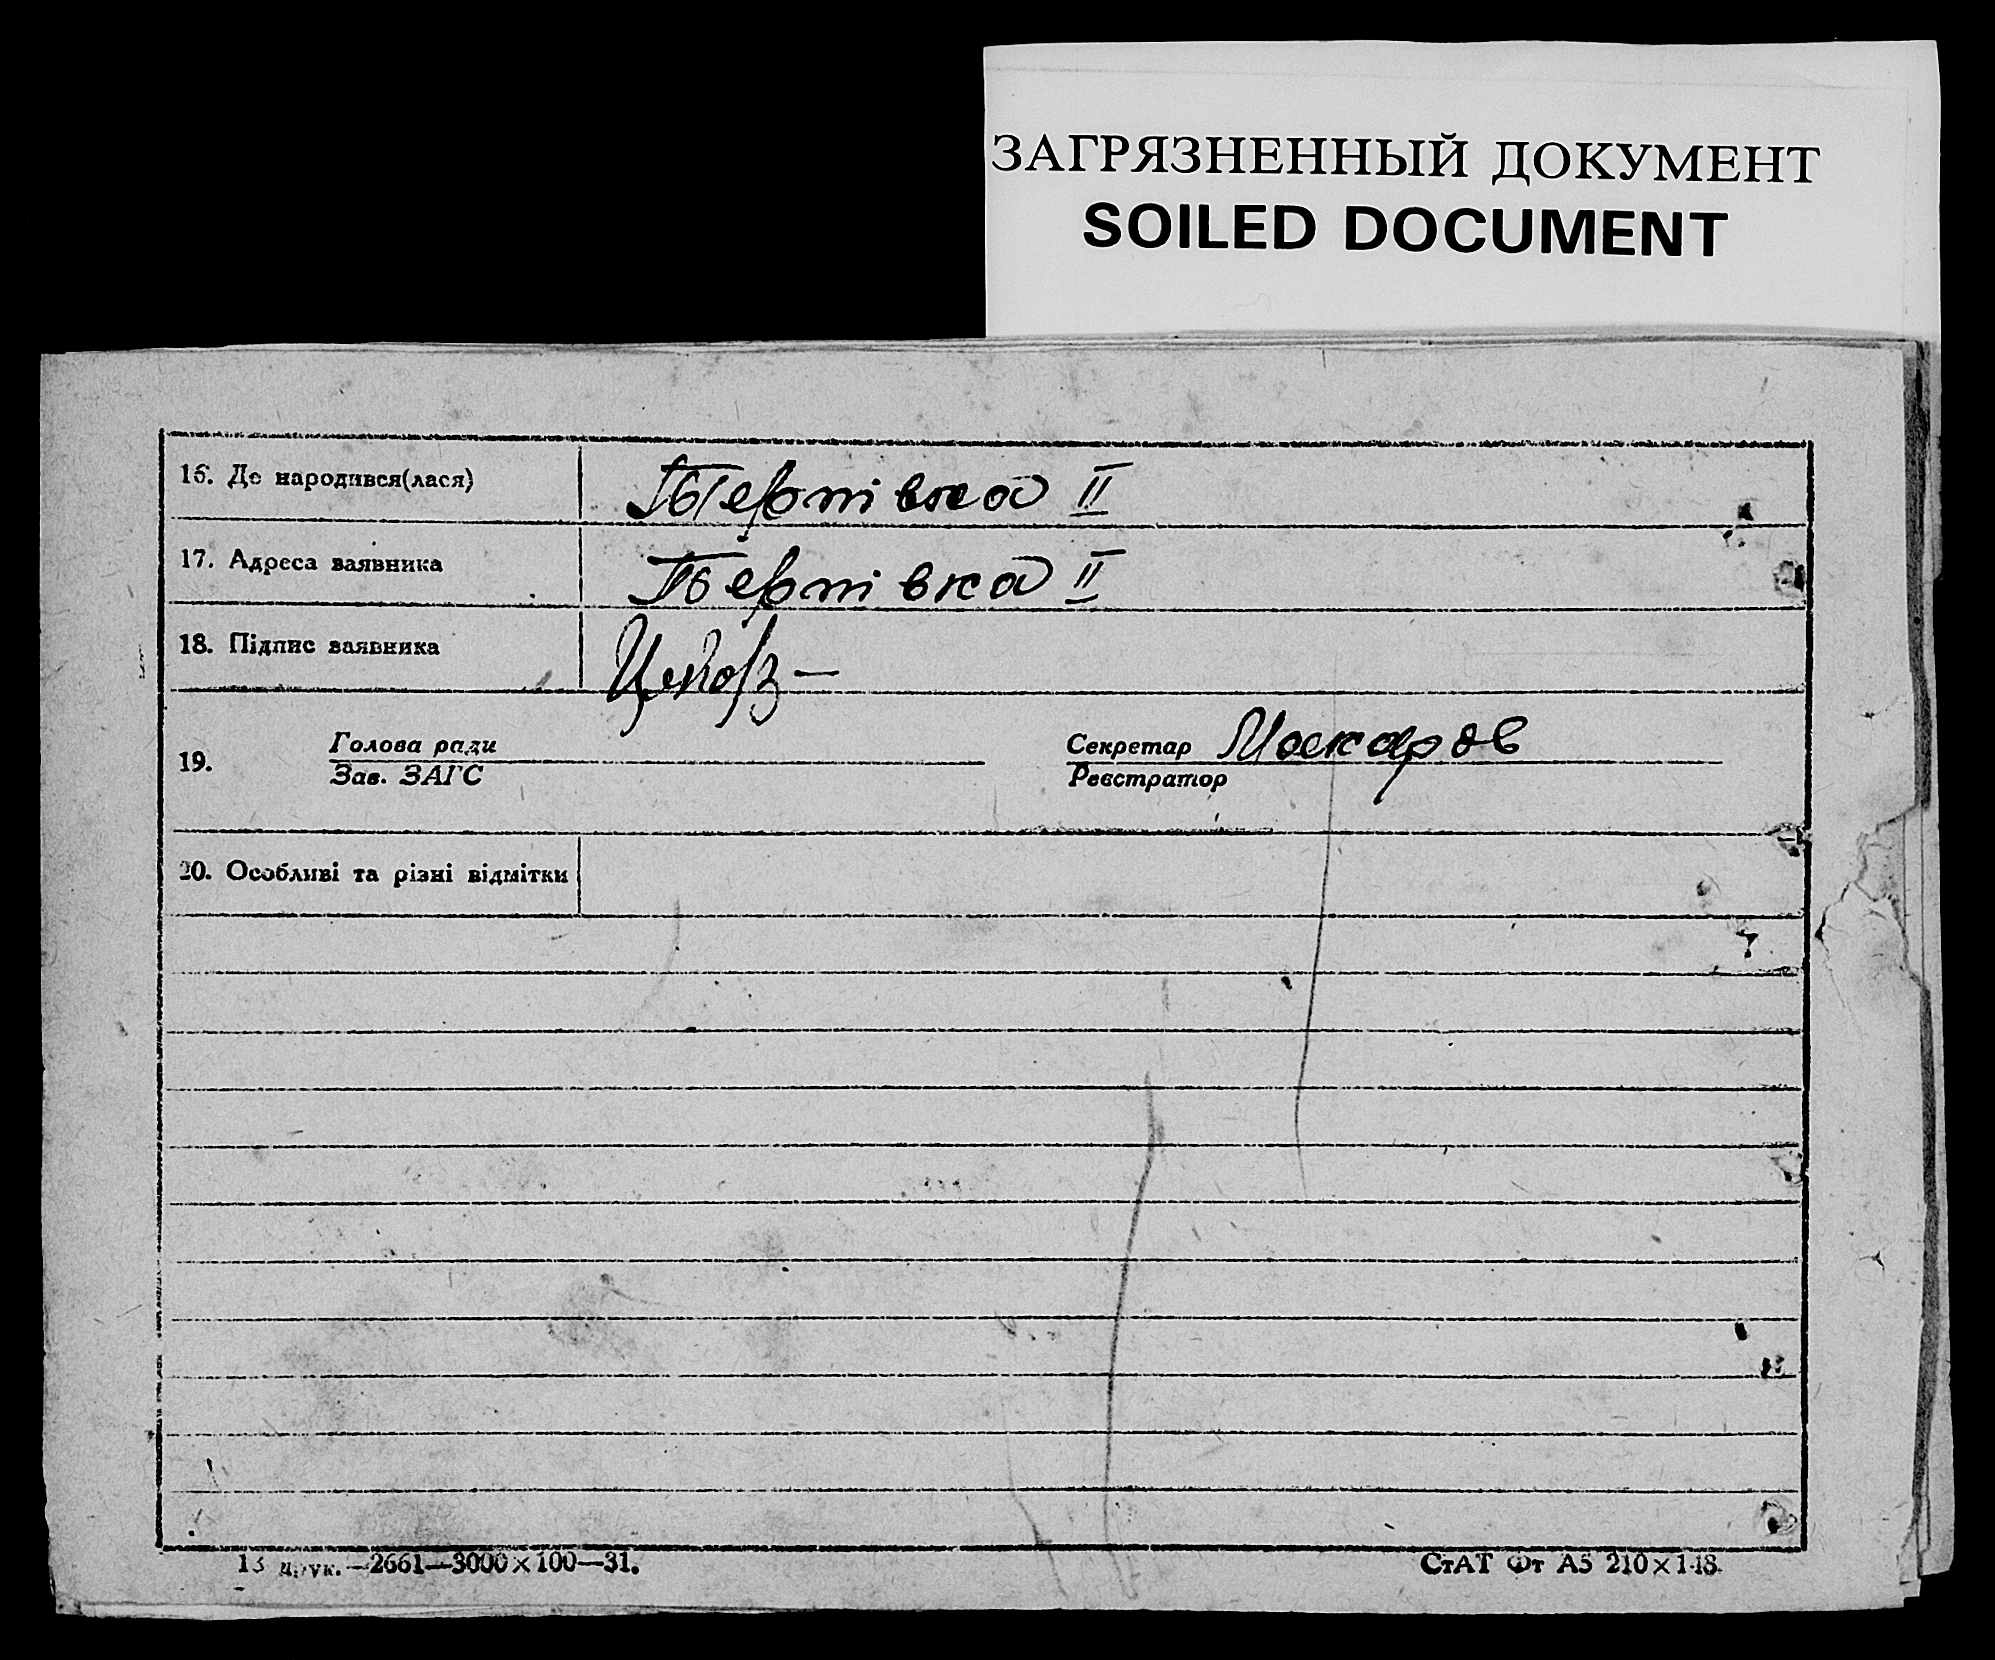 ЗАГРЯЗНЕННЫЙ ДОКУМЕНТ
SOILED DOCUMENT
16. Де народився(лася) Тернівка II
17. Адреса заявника Тернівка II
18. Підпис заявника
19. Голова ради Секретар Макаров
Зав. ЗАГС Реєстратор
20. Особливі та різні відмітки
13 друк.—2661—3000×100—31. СтАТ Фт А5 210×148.